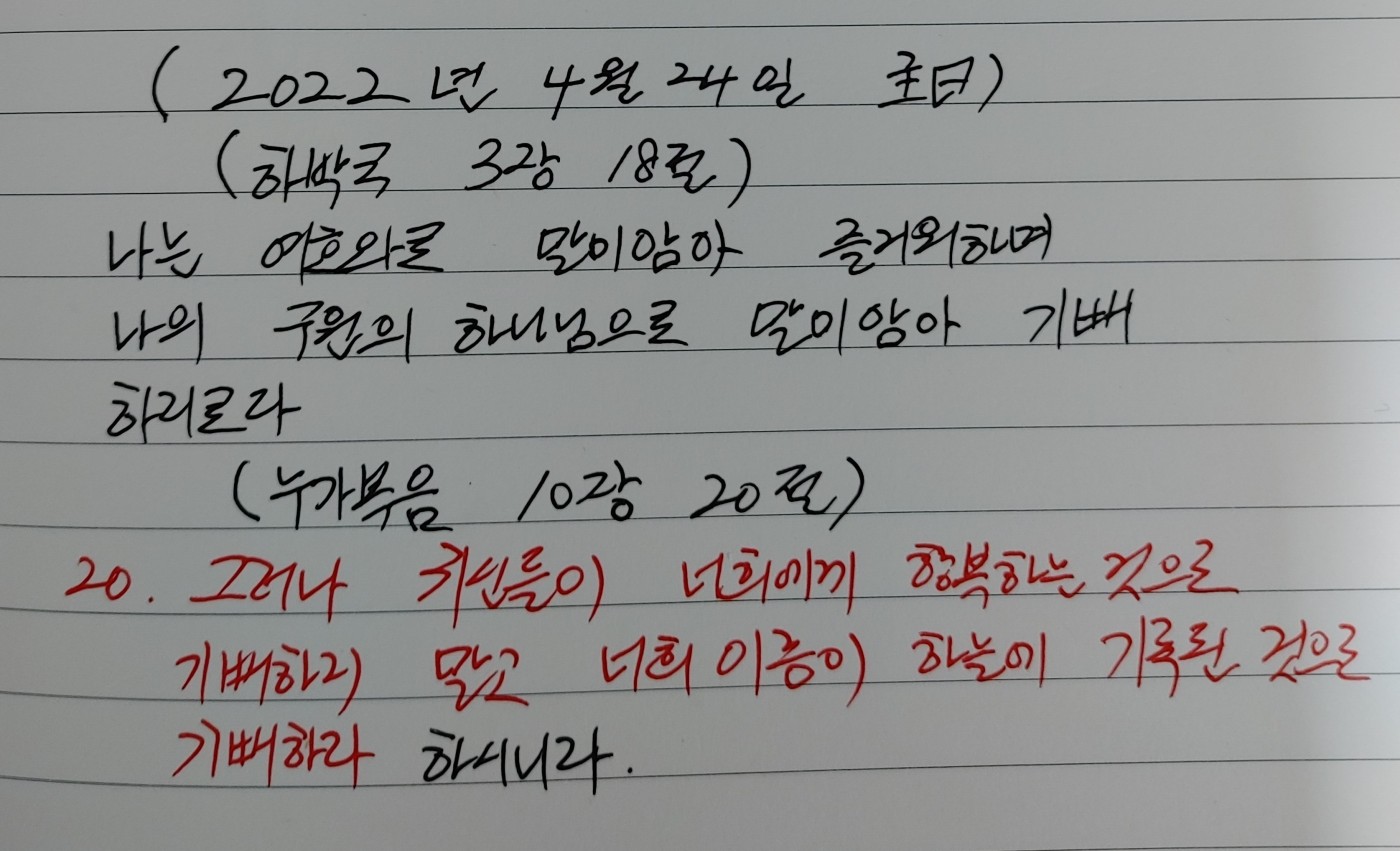 (2022년 4월 24일 主日)
(하박국 3장 18절)
나는 여호와로 말미암아 즐거워하며
나의 구원의 하나님으로 말미암아 기뻐
하리로다
(누가복음 10장 20절)
20. 그러나 귀신들이 너희에게 항복하는 것으로
기뻐하지 말고 너희 이름이 하늘에 기록된 것으로
기뻐하라 하시니라.